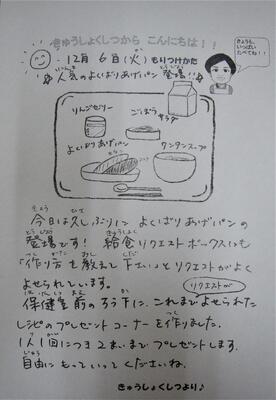 きゅうしょくしつから こんにちは!!
きょうも、
いっぱい
たべてね!!
12月 6日(火) もりつけかた
いちばん
人気のよくばりあげパン 登場!!
りんごゼリー
ごぼう
サラダ
よくばりあげパン
ワンタンスープ
今日は久しぶりに よくばりあげパンの
登場です! 給食リクエストボックスにも
「作り方を教えて下さい」とリクエストがよく
よせられています。
リクエストが
保健室前のろう下に、これまでよせられた
レシピのプレゼントコーナーを作りました。
1人1回につき2まいまでプレゼントします。
自由にもっていってくださいね。
きゅうしょくしつより♪